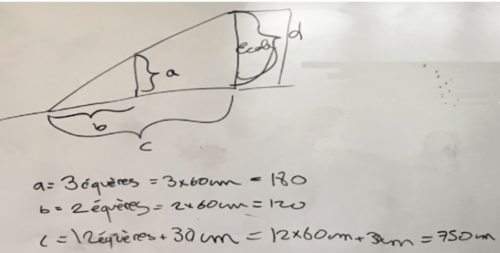 école
d
a
b
c
a = 3 équères = 3x60cm = 180
b = 2 équères = 2x60cm = 120
c = 12 équères + 30cm = 12x60cm + 3cm = 750cm